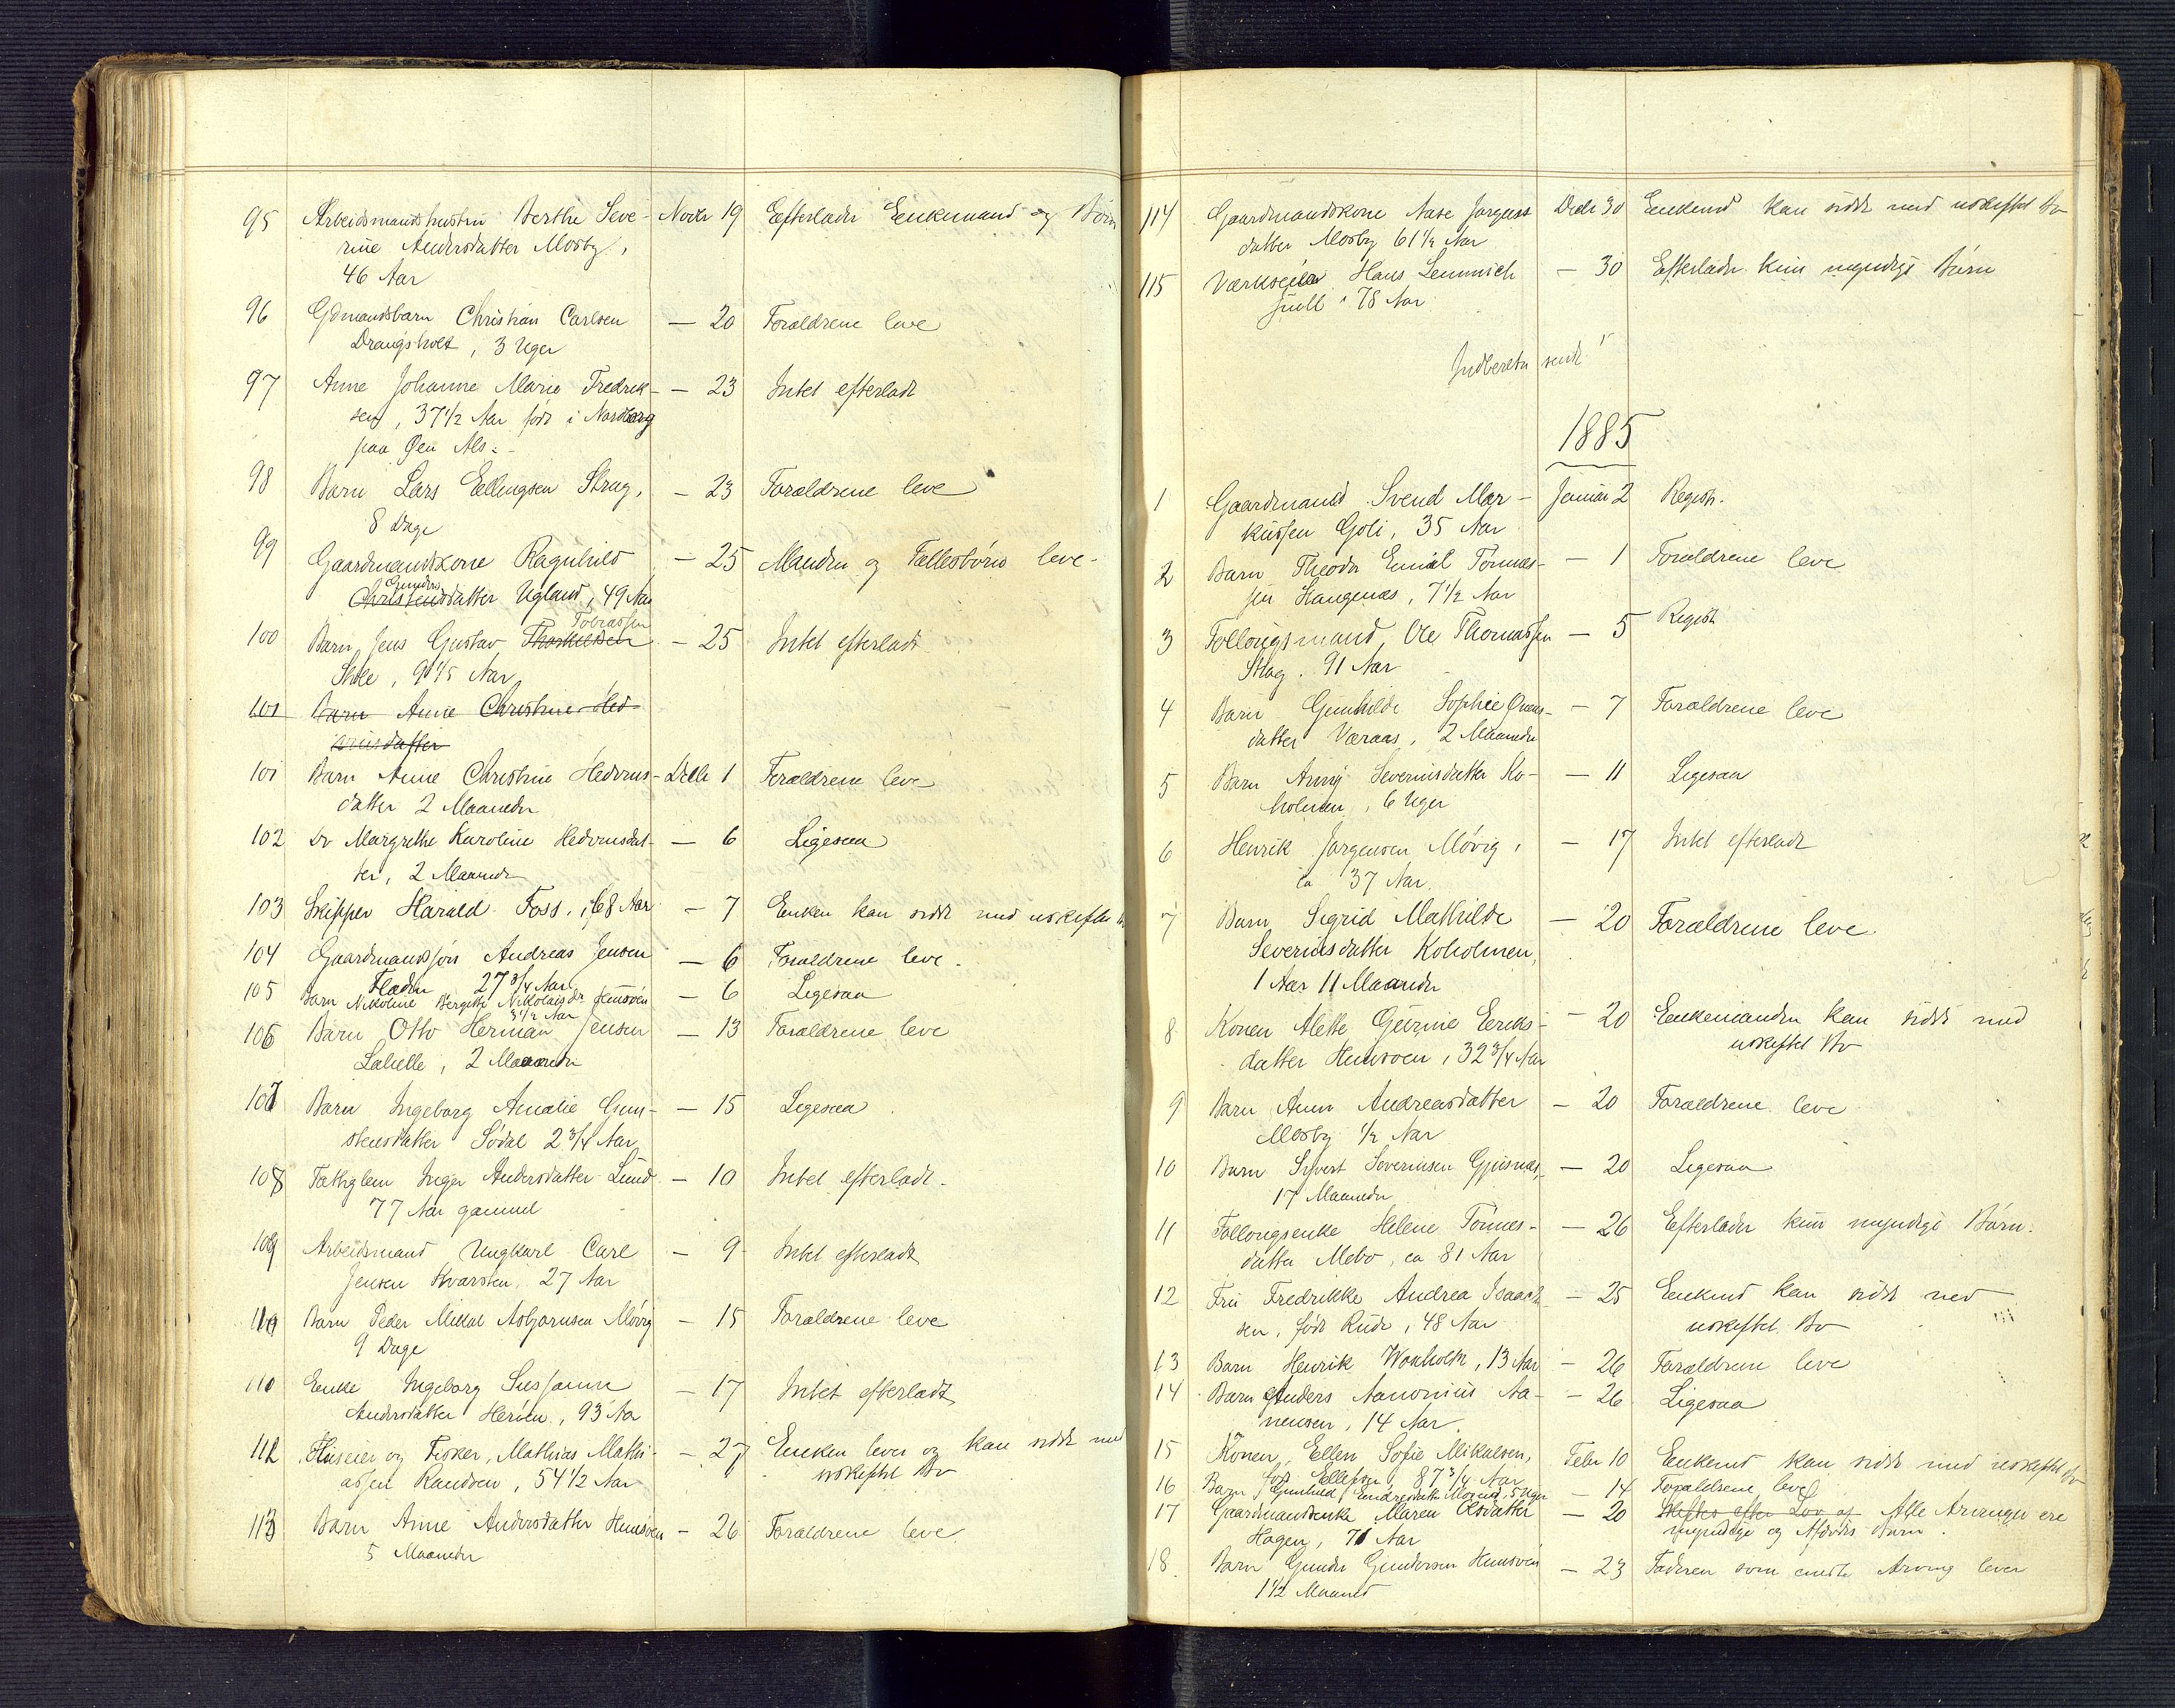 95 Arbeidsmandshustru Berthe Seve- Novbr 19 Efterlader Enkemand og Børn
rine Andersdatter Mosby,
46 Aar
96 Gdmandsbarn Christian Carlsen — 20 Forældrene leve
Drangsholt, 3 Uger
97 Anne Johanne Marie Fredrik- — 23 Intet efterladt
sen, 37 1/2 Aar født i Nordborg
paa Øen Als.
98 Barn Lars Ellingsen Stray, — 23 Forældrene leve
8 Dage
99 Gaardmandskone Ragnhild — 25 Manden og Fællesbørn leve
Gunders
Christensdatter Ugland, 49 Aar
Tobiassen
100 Barn Jens Gustav Thorkildsen — 25 Intet efterladt
9 1/5 Aar
101 Barn Anne Christine Hed-
vinsdatter
101 Barn Anne Christine Hedvins- Decbr 1 Forældrene leve
datter 2 Maaneder
102 Do Margrethe Karoline Hedvinsdat- — 6 Ligesaa
ter, 2 Maaneder
103 Skipper Harald Foss, 68 Aar — 7 Enken kan sidde med uskiftet Bo
104 Gaardmandssøn Andreas Jensen — 6 Forældrene leve.
27 3/4 Aar
105 Barn Nikoline Bergitte Nikolaisdr Hunsøen — 6 Ligesaa
3 1/2 Aar
106 Barn Otto Herman Jensen — 13 Forældrene leve
Lahelle, 2 Maaneder
107 Barn Ingeborg Amalie Gun- — 15 Ligesaa
stensdatter Sødal 2 3/4 Aar
108 Fattiglem Inger Andersdatter Lund — 10 Intet efterladt.
77 Aar gammel
109 Arbeidsmand Ungkarl Carl — 9 Intet efterladt
Jensen Kvarsten, 27 Aar
110 Barn Peder Mikal Asbjørnsen Møvig — 15 Forældrene leve
9 Dage
110 Enke Ingeborg Susanne — 17 Intet efterladt
Andersdatter Herøen, 93 Aar
112 Huseier og Fisker, Mathias Mathi- — 27 Enken lever og kan sidde med
assen Randøen, 54 1/2 Aar uskiftet Bo
113 Barn Anne Andersdatter Hunsøen — 26 Forældrene leve
5 Maaneder
114 Gaardmandskone Aase Jørgens Decbr 30 Enkemd kan sidde med uskiftet Bo
datter Mosby 61 1/2 Aar
115 Værkseier Hans Lemmich — 30 Efterlader kun myndige Børn
Juell 78 Aar
Indberetn sendt
1885
1 Gaardmand Svend Mar- Januar 2 Registr.
kussen Goli, 35 Aar
2 Barn Theodor Emil Tønnes- — 1 Forældrene leve
sen Haugenes, 7 1/2 Aar
3 Føllougsmand, Ole Thomassen — 5 Registr
Stray. 91 Aar
4 Barn Gunhilde Sophie Omens- — 7 Forældrene leve
datter Væraas, 2 Maaneder
5 Barn Anny Severinsdatter Ko- — 11 Ligesaa
holmen, 6 Uger
6 Henrik Jørgensen Møvig, — 17 Intet efterladt
ca 37 Aar
7 Barn Sigrid Mathilde — 20 Forældrene leve.
Severinsdatter Koholmen,
1 Aar 11 Maaneder
8 Konen Alette Gurine Eeriks- — 20 Enkemanden kan sidde med
datter Hunsøen, 32 3/4 Aar uskiftet Bo
9 Barn Anne Andreasdatter — 20 Forældrene leve
Mosby 1/2 Aar
10 Barn Syvert Severinsen Gjusnæs, — 20 Ligesaa
17 Maaneder
11 Føllougsenke Helene Tønnes- — 26 Efterlader kun myndige Børn.
datter Mebø, ca 81 Aar
12 Fru Fredrikke Andrea Isaach — 25 Enkemd kan sidde med
sen, født Rude, 48 Aar uskiftet Bo
13 Barn Henrik Woxholth, 13 Aar — 26 Forældrene leve
14 Barn Anders Aanonius Aa- — 26 Ligesaa
nensen, 14 Aar.
15 Konen, Ellen Sofie Mikalsen, Febr 10 Enkemd kan sidde med uskiftet Bo
født Ellefsen, 87 3/4 Aar
16 Barn Gunhild Endresdatter 5 Uger — 14 Forældrene leve
17 Gaardmandsenke Maren Olsdatter — 20 Skiftes efter Lov af Alle Arvinger ere
Hagen, 71 Aar myndige og Afdødes Børn.
18. Barn Gunder Gundersen Hunsøen — 23 Faderen som eneste Arving lever
1 1/2 Maaned